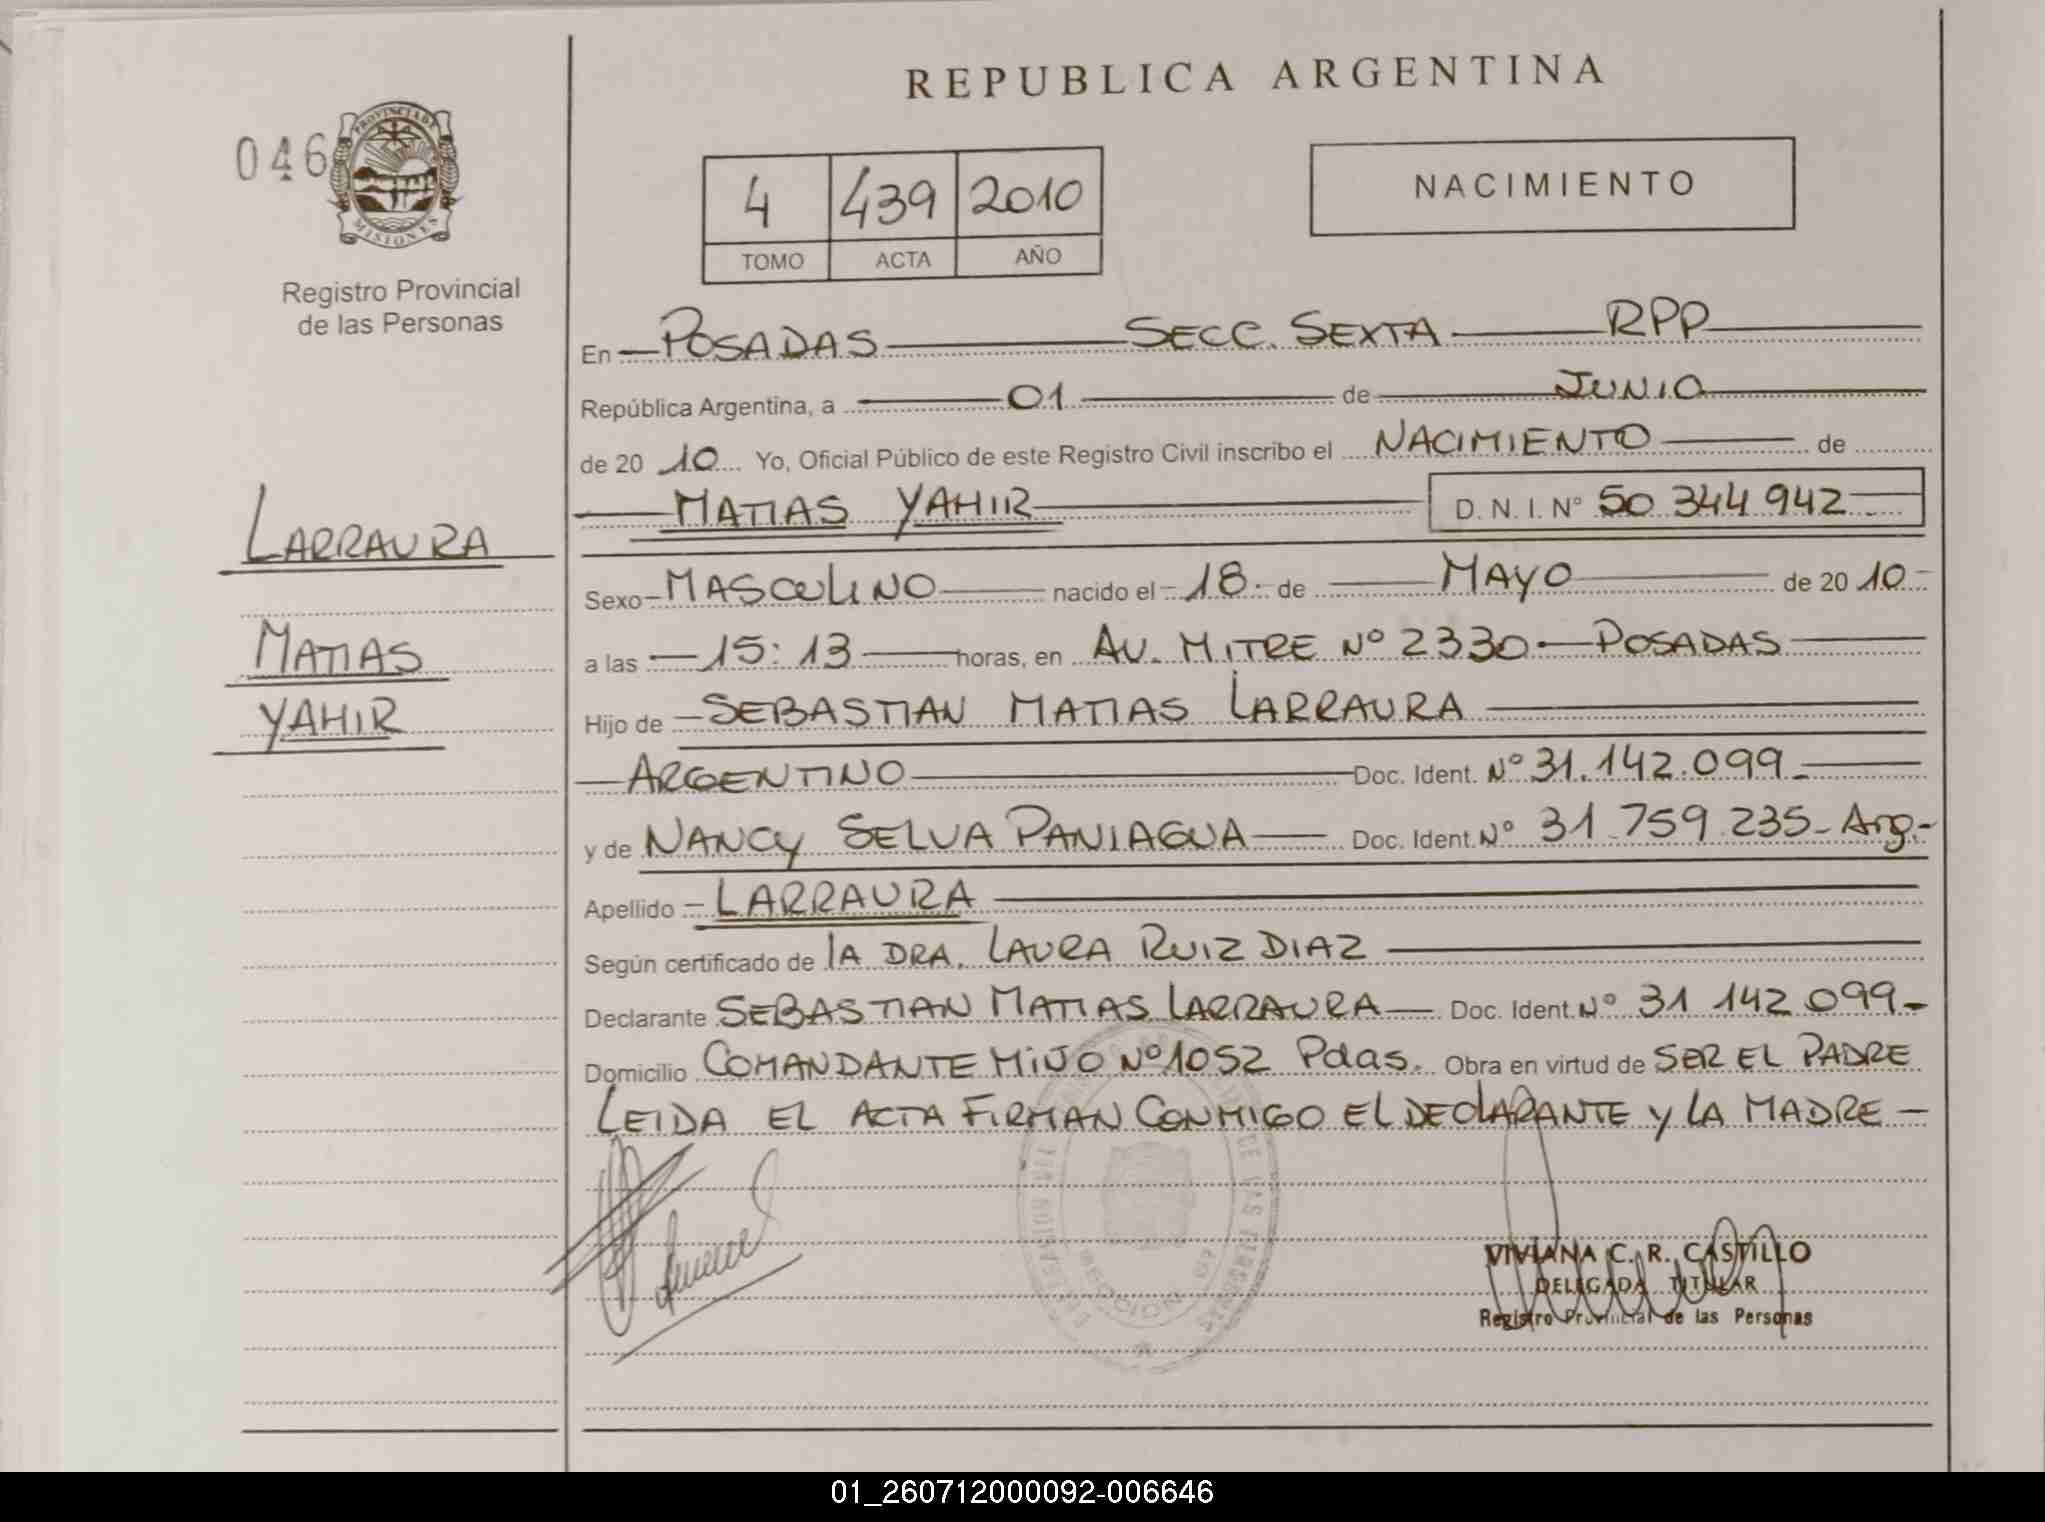 REPUBLICA ARGENTINA
046
PROVINCIA DE
MISIONES
Registro Provincial
de las Personas
4 439 2010
TOMO ACTA AÑO
NACIMIENTO
En POSADAS SECC. SEXTA RPP
República Argentina, a 01 de JUNIO
de 20 10 Yo, Oficial Público de este Registro Civil inscribo el NACIMIENTO de
MATIAS YAHIR D.N.I. Nº 50 344 942
LARRAURA
MATIAS
YAHIR
Sexo MASCULINO nacido el 18 de MAYO de 20 10
a las 15:13 horas, en AV. MITRE Nº 2330 - POSADAS
Hijo de SEBASTIAN MATIAS LARRAURA
ARGENTINO Doc. Ident. Nº 31.142.099
y de NANCY SELVA PANIAGUA Doc. Ident. Nº 31.759.235 - Arg.
Apellido LARRAURA
Según certificado de LA DRA. LAURA RUIZ DIAZ
Declarante SEBASTIAN MATIAS LARRAURA Doc. Ident. Nº 31 142 099
Domicilio COMANDANTE MIÑO Nº 1052 Pdas. Obra en virtud de SER EL PADRE
LEIDA EL ACTA FIRMAN CONMIGO EL DECLARANTE Y LA MADRE
VIVIANA C. R. CASTILLO
DELEGADA TITULAR
Registro Provincial de las Personas
01_260712000092-006646